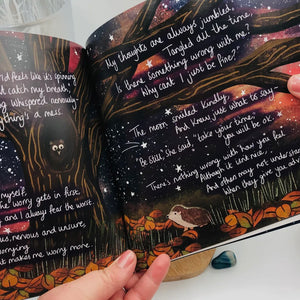 ld feels like it's spinning
't catch my breath,
ng whispered nervously-
ything's a mess.
myself.
he worry gets in first,
and I always fear the worst.
ous, nervous and unsure,
nwind,
t makes me worry more.
My thoughts are always jumbled,
Tangled all the time,
Is there something wrong with me?
Why can't I just be fine?"
The moon smiled kindly,
And knew just what to say-
"Be still," she said, "take your time,
you will be ok.
There's nothing wrong with how you feel
Although it isn't nice,
And others may not understand
When they give you